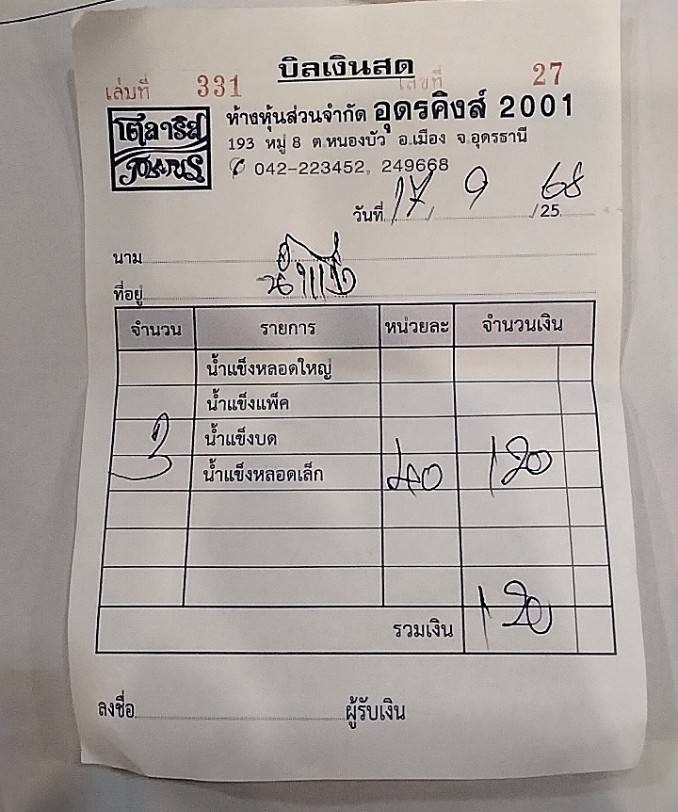 บิลเงินสด
เล่มที่ 331 เลขที่ 27
โซลาริส
ห้างหุ้นส่วนจำกัด อุดรคิงส์ 2001
193 หมู่ 8 ต.หนองบัว อ.เมือง จ.อุดรธานี
042-223452, 249668
วันที่ 17 / 9 /25 68
นาม
น้ำแข็ง
ที่อยู่
จำนวน รายการ หน่วยละ จำนวนเงิน
น้ำแข็งหลอดใหญ่
น้ำแข็งแพ็ค
น้ำแข็งบด
3 น้ำแข็งหลอดเล็ก 40 120
รวมเงิน 120
ลงชื่อ ผู้รับเงิน